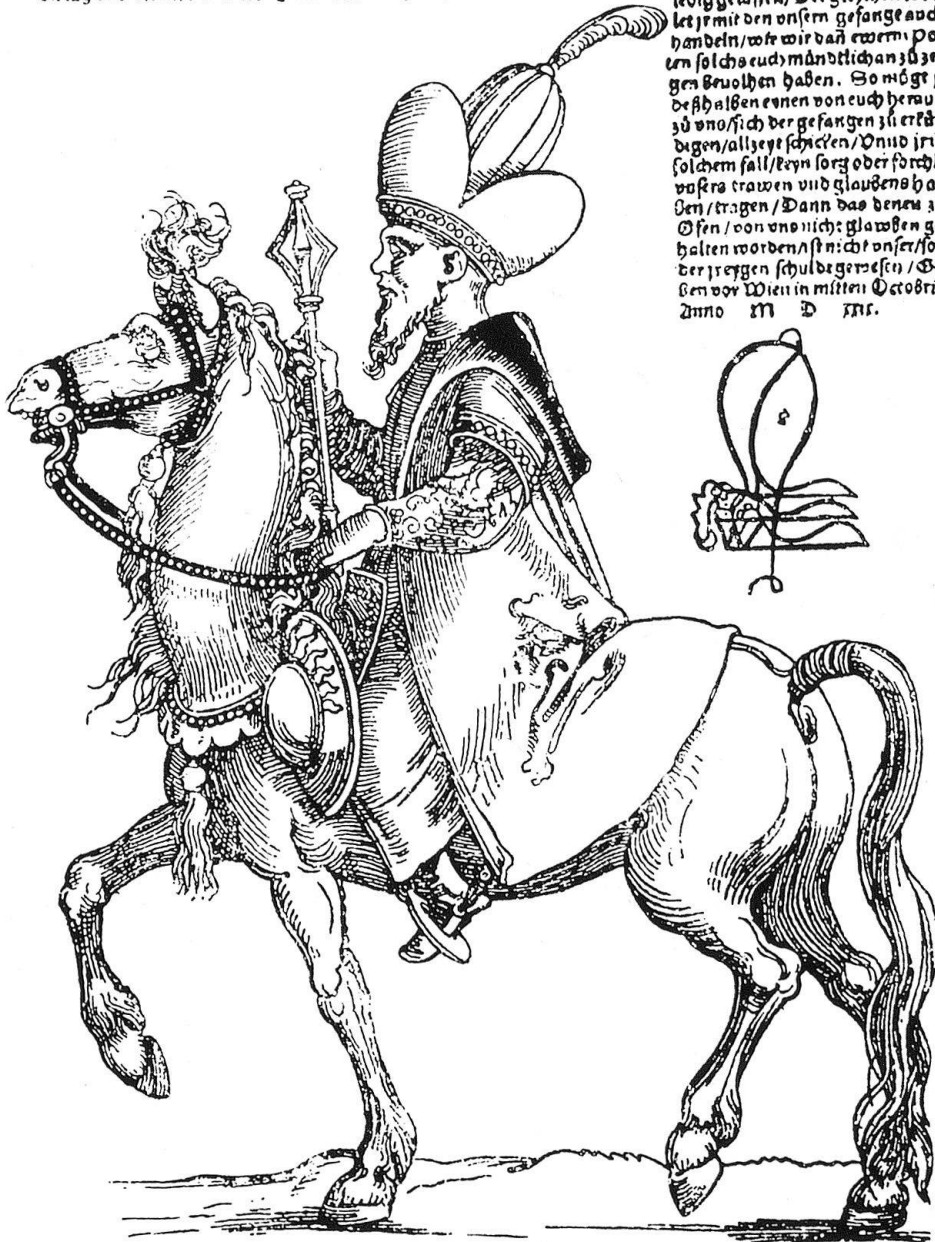 let jr mit den vnsern gefange auch
handeln/wie wir dañ ewerm po
ten solchs euch mündtlich an zů ze
gen bevolhen haben. So möge
deßhalben eynen von euch herau
zů vns/sich der gefangen zů erkü
digen/allzeyt schicken/Vnnd jr i
solchem fall/keyn sorg oder forch
vnsers trawen vnd glaubens ha
ben/tragen/Dann das denen z
Ofen/von vns nicht glawben g
halten worden/ist nicht vnser/so
der jr eygen schulde gewesen/Ge
ben vor Wien in mitten Octobri
Anno M D XXIX.